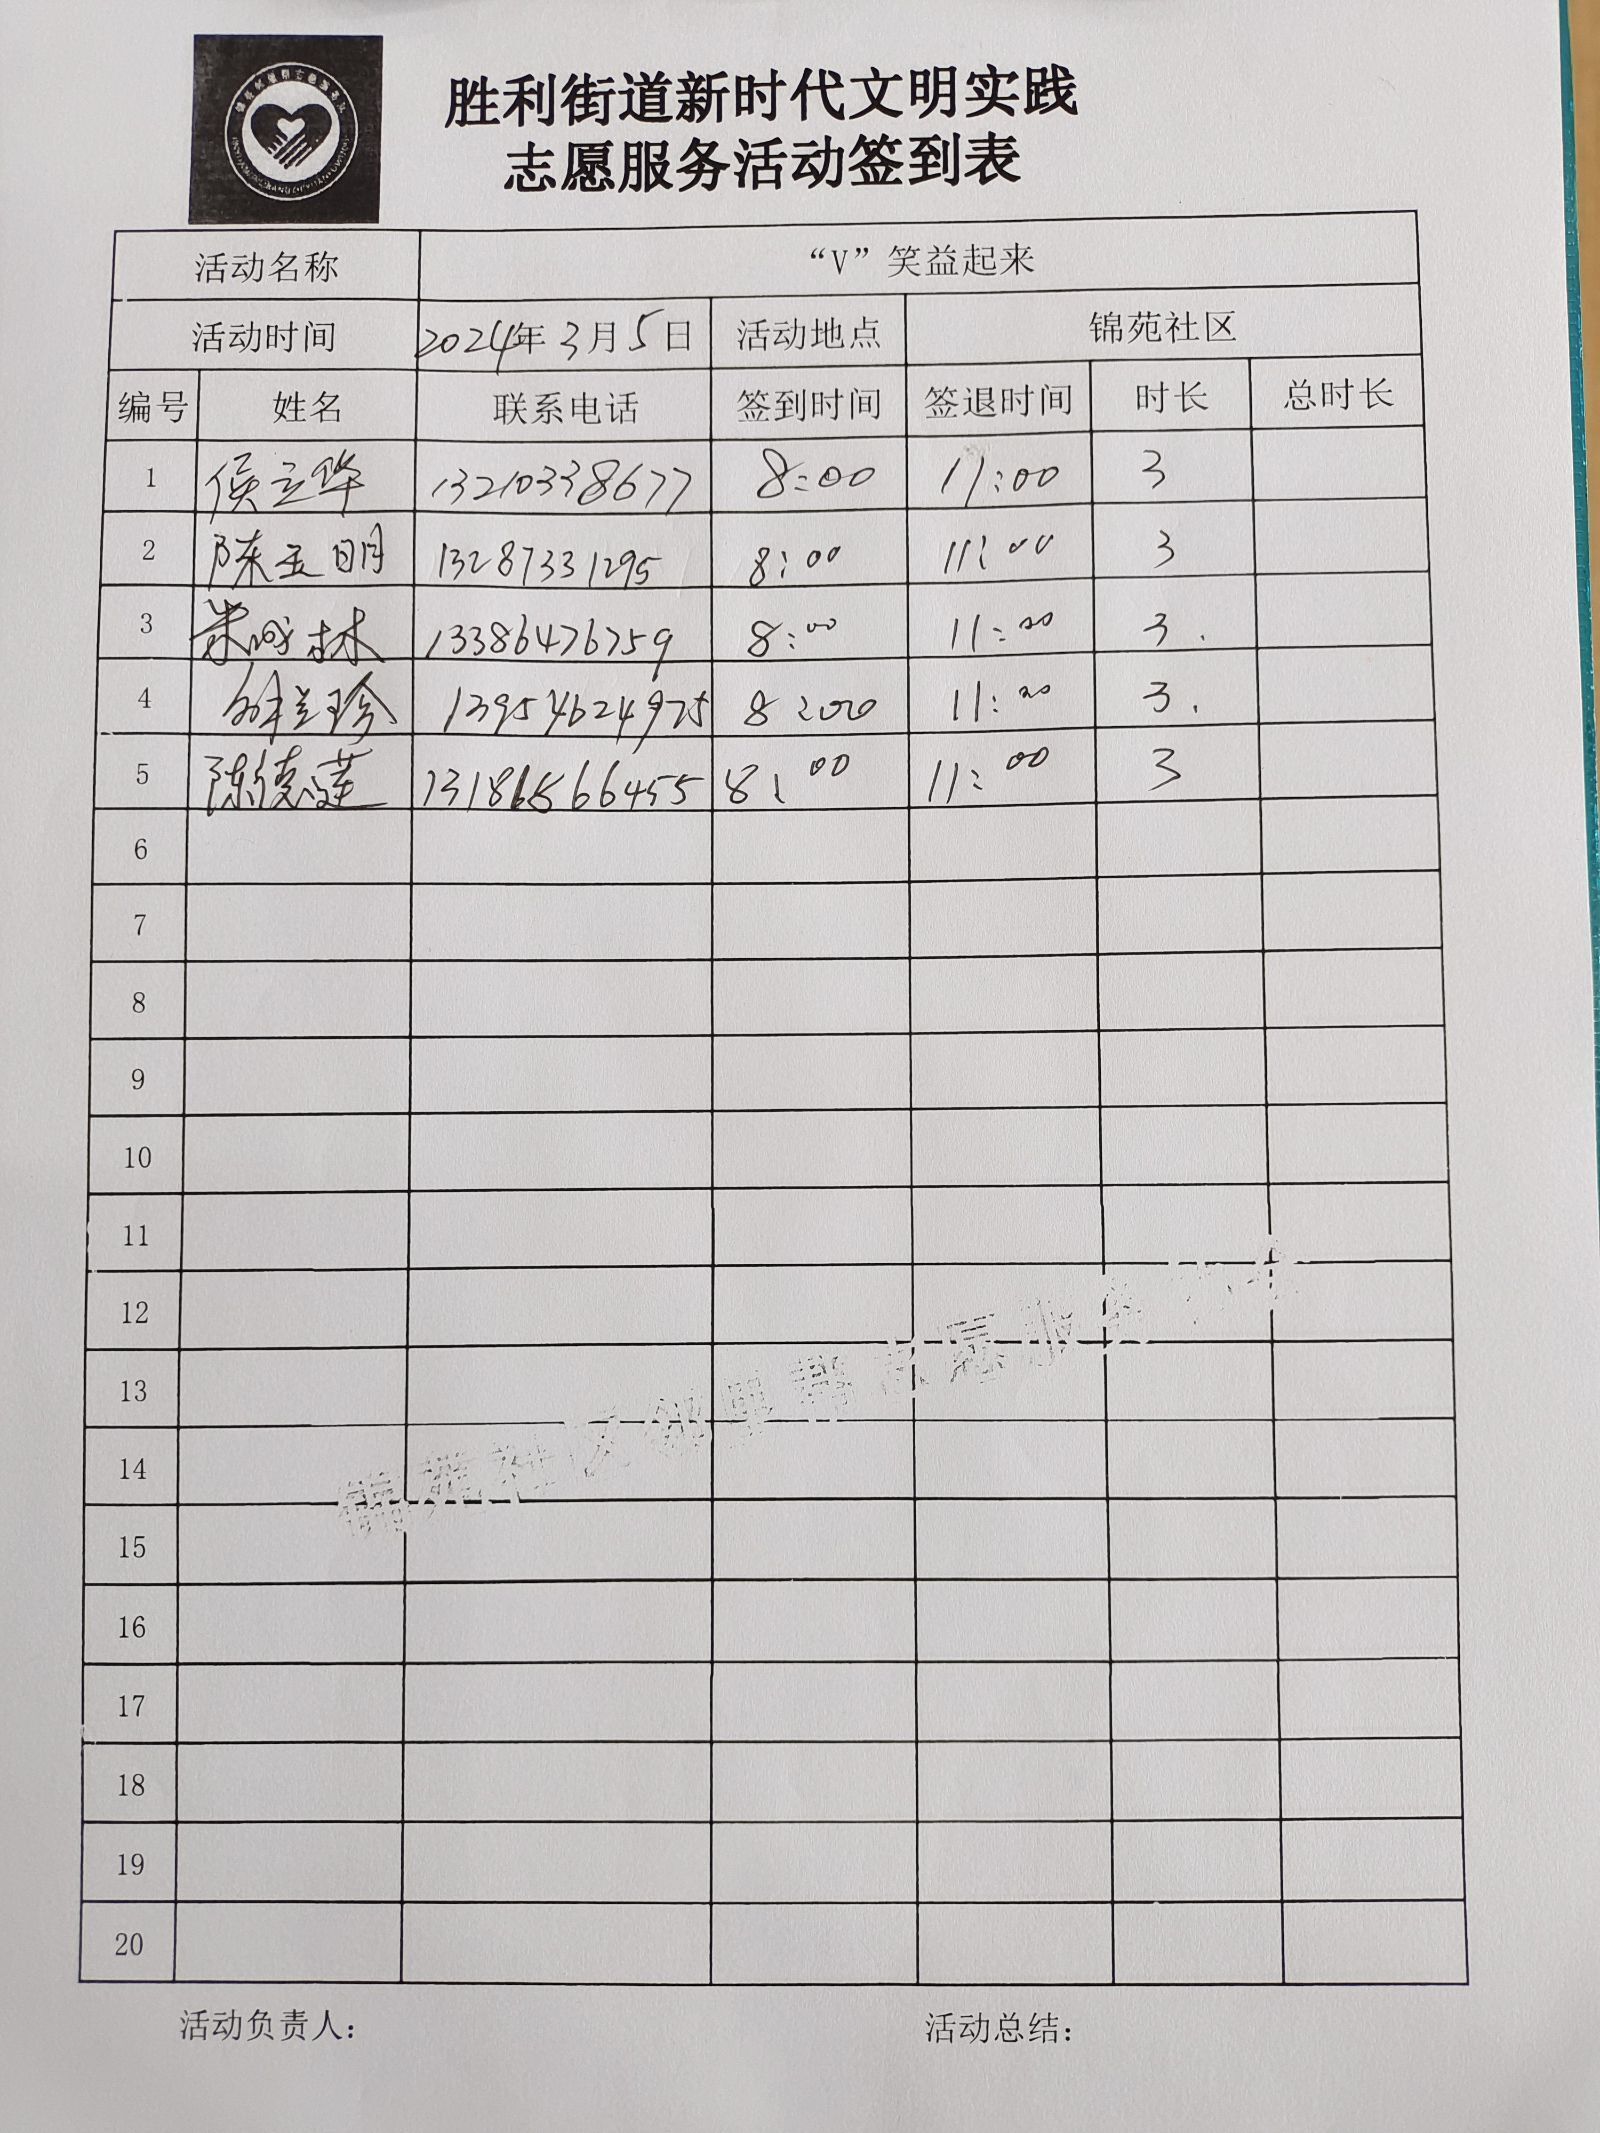 胜利街道新时代文明实践
志愿服务活动签到表
活动名称 “V”笑益起来
活动时间 2024年3月5日 活动地点 锦苑社区
编号 姓名 联系电话 签到时间 签退时间 时长 总时长
1 侯立华 13210338677 8:00 11:00 3
2 陈玉明 13287331295 8:00 11:00 3
3 13386476759 8:00 11:00 3.
4 兰珍 13954624975 8:00 11:00 3.
5 陈德莲 8:00 11:00 3
6
7
8
9
10
11
12
13
14
15
16
17
18
19
20
锦苑社区邻里帮志愿服务
活动负责人: 活动总结: